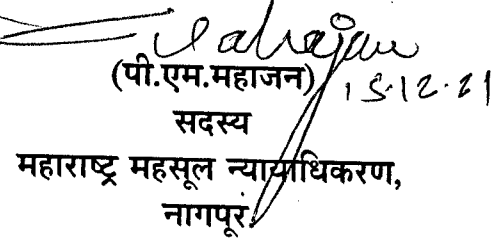 Mahajan
(पी.एम.महाजन) 15.12.21
सदस्य
महाराष्ट्र महसूल न्यायाधिकरण,
नागपूर.